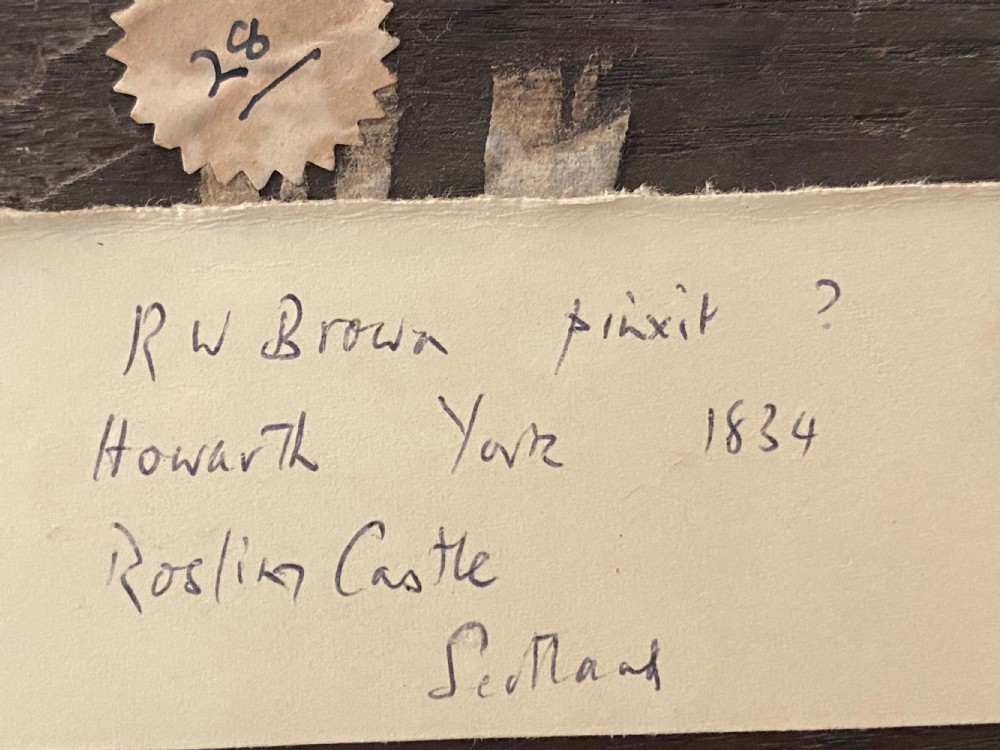 28/
R W Brown pinxit ?
Howarth York 1834
Roslin Castle
Scotland